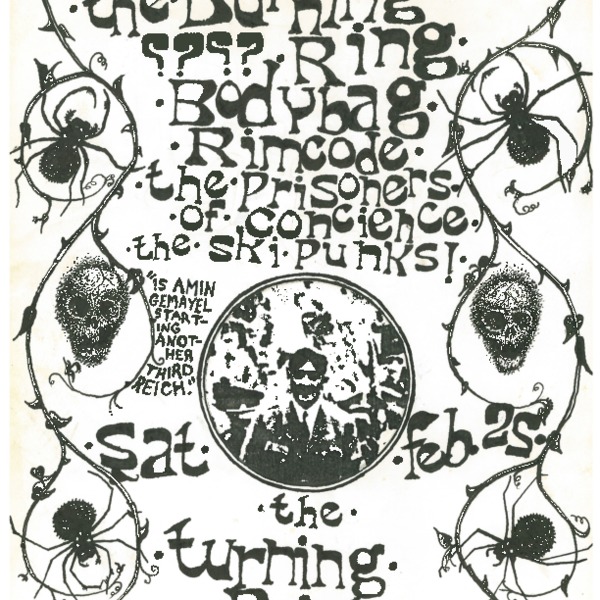 the Burning
???? Ring·
·Bodybag·
·Rimcode·
·the·Prisoners·
·of·concience·
·the·ski·punks!
"IS AMIN
GEMAYEL
START-
ING
ANOT-
HER
THIRD
REICH."
·Sat· ·feb. 25·
·the·
·turning·